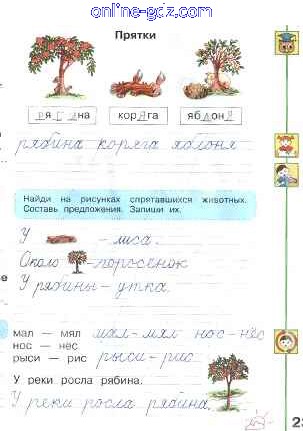 online-gdz.com
Прятки
рябина коряга яблоня
рябина коряга яблоня
Найди на рисунках спрятавшихся животных.
Составь предложения. Запиши их.
У - лиса.
Около - поросёнок
У рябины - утка.
мал — мял мал-мял нос-нёс
нос — нёс
рыси — рис рыси-рис
У реки росла рябина.
У реки росла рябина.